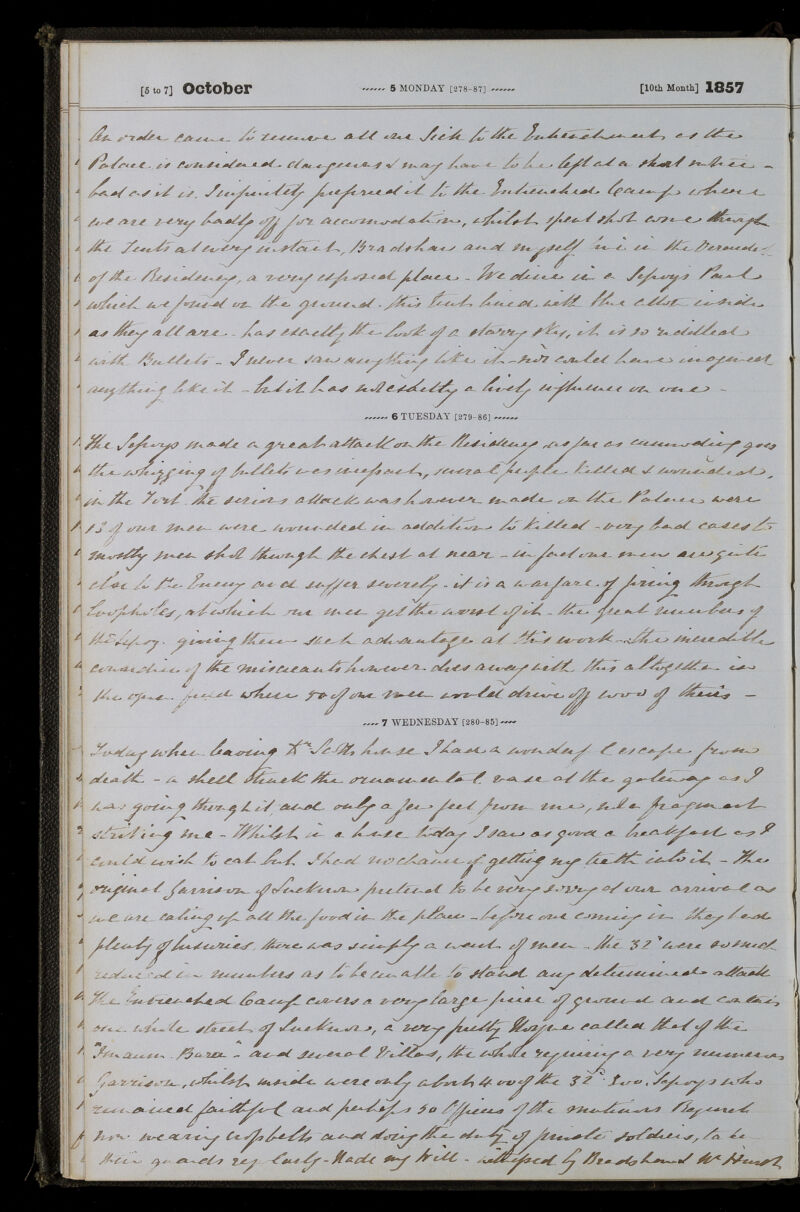 [5 to 7] October ...... 5 MONDAY [278-87] ...... [10th Month] 1857
An order came to remove all our Sick to the Entrenchment, as the
Palace is considered dangerous & may have to be left at a short notice -
bad as it is. I infinitely preferred it to the Entrenched Camp where
we are very badly off for accomodation, whilst spent shot come through
the Tents at every instant, Bradshaw and myself live in the Verandah
of the Residency, a very exposed place - We dine in a Sepoy's Paul
which we found on the ground. this tent lined with blue cloth inside
as they all are - has exactly the look of a starry sky, it is so riddled
with Bullets - I never saw anything like it - nor could have imagined
anything like it - but it has not a lively influence on one -
...... 6 TUESDAY [279-86] ......
The Sepoys made a great attack on the Residency as far as goes
the whizzing of bullets was incessant, several people killed & wounded.
in the Fort the serious attack was however made on the Palace were
13 of our men were wounded in addition to killed - very bad cases to
mostly men shot through the chest at near - in fact our men are quite
close to the Enemy and suffer severely - it is a warfare of firing through
loopholes, at which our men get the worst of it - the great numbers of
the Sepoy giving them such advantage at this work - the incredible
cowardice of the miscreants however does away with this altogether in
the open field where 50 of our men would drive off 1000 of theirs -
.... 7 WEDNESDAY [280-85] ....
Today when leaving Dr Scotts house I had a wonderful escape from
death - a shell struck the ornamental vase at the gateway as I
was going through it and only a few feet from me, not a fragment
striking me - Whilst in a house today I saw as good a breakfast as I
could wish to eat but I had no chance of getting my teeth into it - The
original Garrison of Lucknow pretend to be very sorry at our arrival as
we are eating up all the food in the place - before our coming in they had
plenty of luxuries, there was simply a want of men - the 32d were so much
reduced in numbers as to be unable to stand any determined attack
The Entrenched Camp covers a very large piece of ground and contains
one whole street of Lucknow, a very pretty Mosque called that of the
"Imaum Bara" - and several Villas, the whole requiring a very numerous
Garrison, whilst inside were only about 400 of the 32d 300 Sepoys who
remained faithful and perhaps 50 Officers of the mutinous Regiments
now wearing crossbelts and doing the duty of private soldiers, take
their guards regularly - Made my Will - witnessed by Bradshaw &